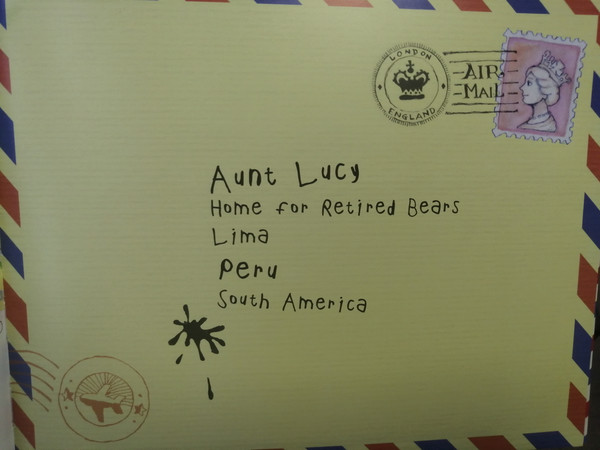 LONDON
ENGLAND
AIR
MAIL
Aunt Lucy
Home for Retired Bears
Lima
Peru
South America